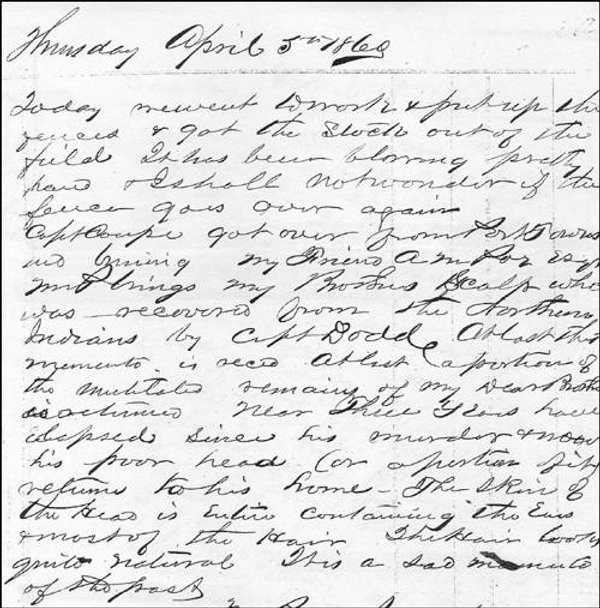 Thursday April 5th 1860
Today we went to work & put up the
fences & got the Stock out of the
field It has been blowing pretty
hard & I shall not wonder if the
fence goes over again
Capt Coupe got over from Port Towns
end evening my Friend A M
and brings my Brothers Scalp who
was recovered from the Northern
Indians by Capt Dodd At last this
memento is recd At last a portion of
the mutilated remains of my dear Brothe
is returned Near Three Years have
elapsed since his murder & now
his poor head (or a portion of it
returns to his home - The skin of
the Head is entire containing the Ears
& most of the Hair The Hair looks
quite natural It is a sad memento
of the past